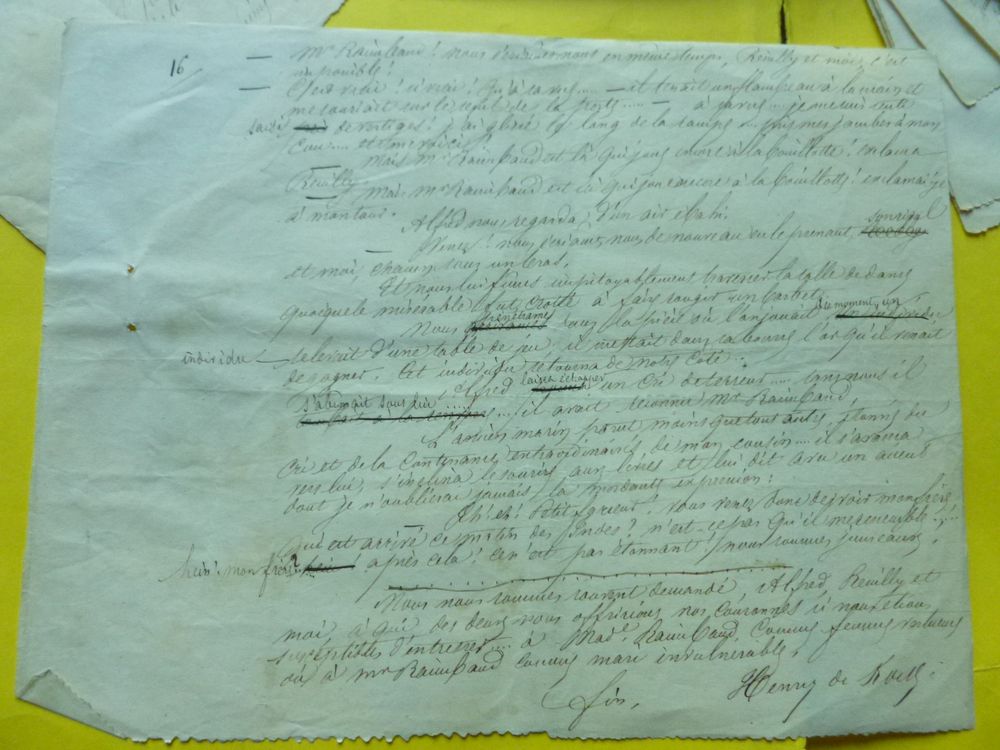 16
— Mr Raimbaud! nous écriâmes nous en même temps, Reuilly et moi, c'est
impossible!
— C'est vrai! si vrai! qu'à sa vue..... — il tenait un flambeau à la main et
me souriait sur le seuil de la porte...... — à sa vue... je me suis senti
saisi de vertiges! j'ai glissé le long de la rampe ... mes jambes à mon
cou....
— Mais Mr Raimbaud est là qui joue encore à la bouillotte! exclama
Reuilly.
— Mais Mr Raimbaud est là qui joue encore à la bouillotte! exclamai-je
à mon tour.
Alfred nous regarda d'un air ébahi.
— Venez! nous écriâmes nous de nouveau en le prenant,
et moi, chacun sous un bras.
Et nous lui fîmes impitoyablement traverser la salle de danse
quoique le misérable fut crotté à faire rougir un barbet.
Nous pénétrâmes dans la pièce où l'on jouait. En ce moment, un
individu se levait d'une table de jeu, il mettait dans sa bourse l'or qu'il venait
de gagner. Cet individu se tourna de notre côté...
Alfred laissa échapper un cri de terreur.....
s'abîmait sous lui ..... il avait reconnu Mr Raimbaud.
L'ancien marin parut moins que tout autre étonné du
cri et de la contenance extraordinaires de mon cousin.... il s'avança
vers lui, s'inclina le sourire aux lèvres et lui dit avec un accent
dont je n'oublierai jamais la mordante expression:
— Eh! eh! petit curieux. Vous venez donc de voir mon frère
qui est arrivé ce matin des Indes? n'est-ce pas qu'il me ressemble?....
hein! mon frère? après cela! ce n'est pas étonnant! nous sommes jumeaux.
Nous nous sommes souvent demandé, Alfred, Reuilly et
moi, à qui des deux nous offririons nos couronnes si nous étions
susceptibles d'en tresser.... à Made Raimbaud, comme femme vertueuse
ou à Mr Raimbaud comme mari invulnérable.
Henry de Kock.
Fin.